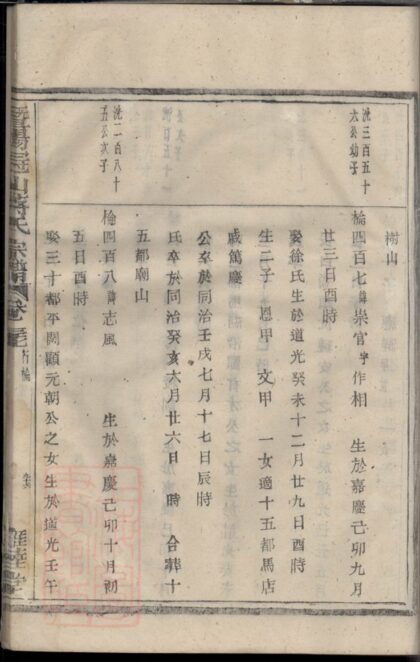 樹山
洗三百五十
六公幼子
惀四百七諱崇官字作相 生於嘉慶己卯九月
廿三日酉時
娶徐氏生於道光癸未十二月廿九日酉時
生二子 恩甲 文甲 一女適十五都馬店
戚篤慶
公卒於同治壬戌七月十七日辰時
氏卒於同治癸亥六月廿六日 時 合葬十
五都廟山
洗二百八十
五公次子
惀四百八諱志風 生於嘉慶己卯十月初
五日酉時
娶三十都平闊顧元朝公之女生於道光壬午
山 氏宗譜